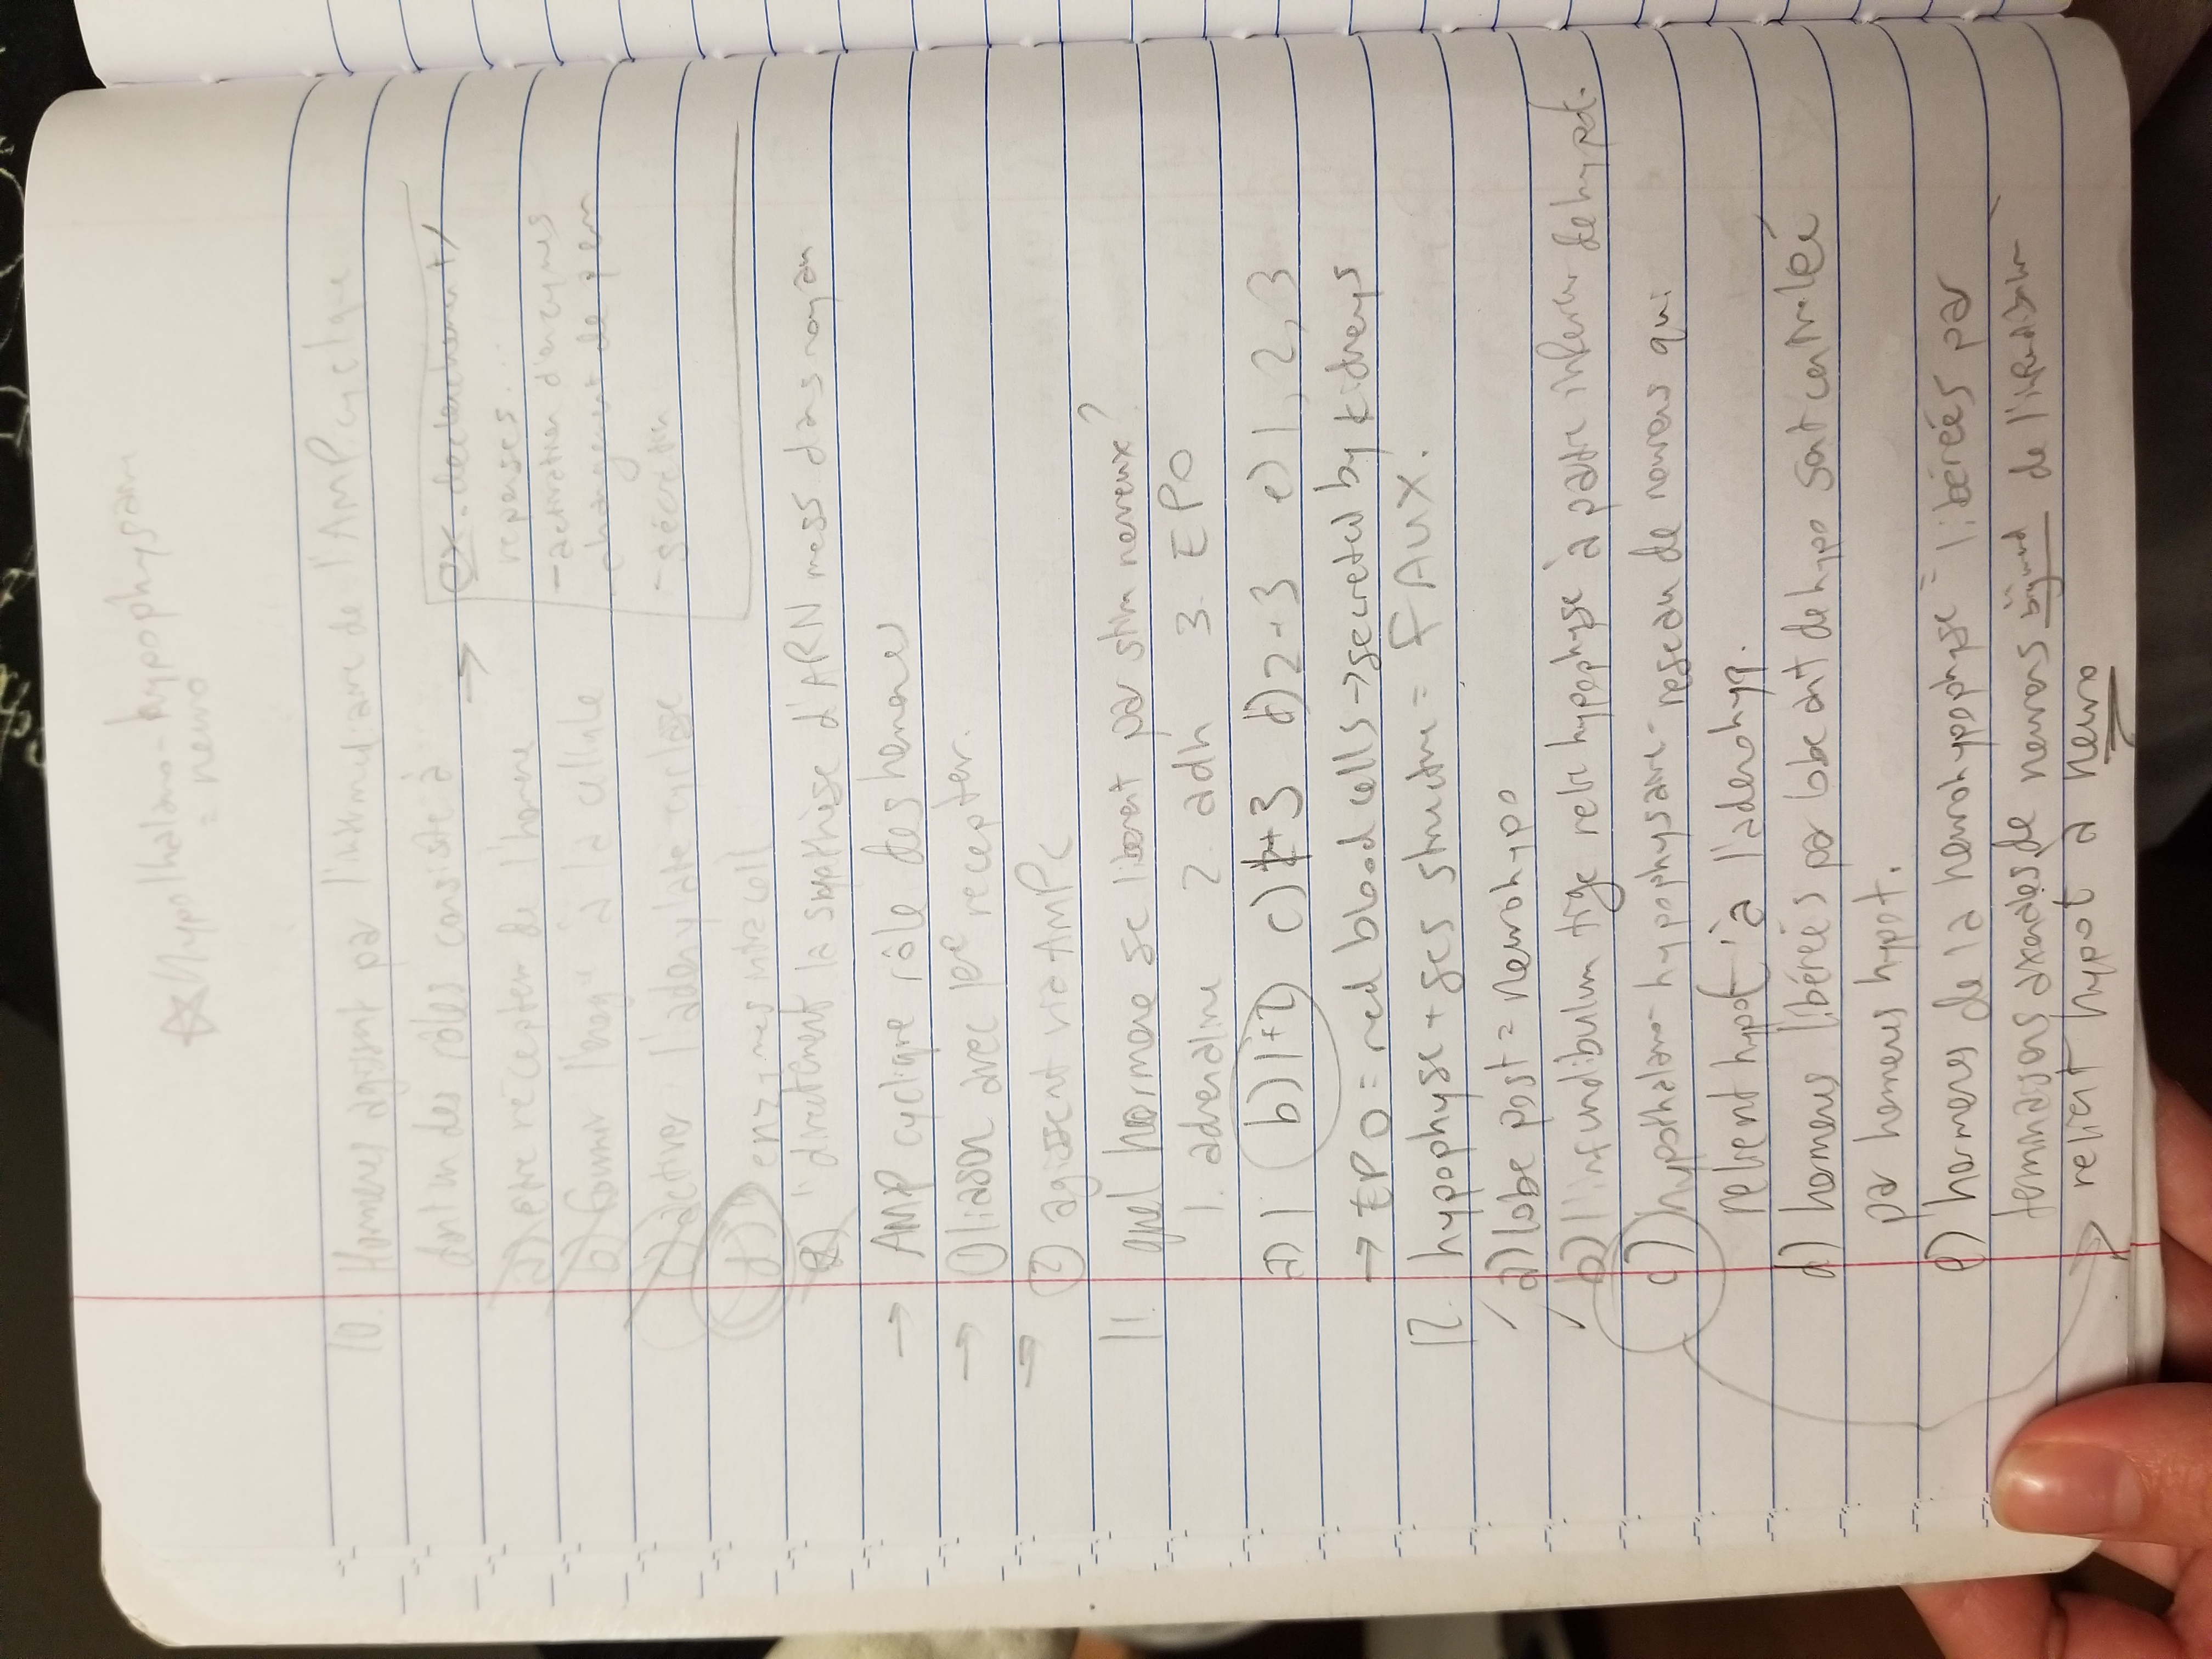 ☆ Hypothalamo-hypophysaire
= neuro
10. Hormones agissent par l'intermédiaire de l'AMP cyclique
dont un des rôles consiste à
a) être récepteur de l'hormone
b) fournir l'énergie à la cellule
c) activer l'adenylate cyclase
d) " enzymes intra cell
e) " directement la synthèse d'ARN mess dans noyau
→ ex. declenchent
reponses...
- activation d'enzymes
- changement de perm
- sécrétion
→ AMP cyclique rôle des hormones
→ ① liaison avec 1er recepteur.
→ ② agissent via AMPc
11. quel hormone se liberent par stim nerveux?
1. adrenaline 2. adh 3. EPO
a) 1 b) 1+2 c) 1+3 d) 2+3 e) 1, 2, 3
→ EPO = red blood cells → secreted by kidneys
12. hypophyse + ses structure = FAUX.
a) lobe post = neurohypo
b) l'infundibulum tige relie hypophyse à partie inferieur de hypot.
c) hypothalamo-hypophysaire - reseau de neurones qui
relient hypot à l'adenohyp.
d) hormones libérés par lobe ant de hypo sont contrôlée
par hormones hypot.
e) hormones de la neurohypophyse = libérés par
terminaisons axonales de neurones de l'hypothalam
→ relient hypot a neuro